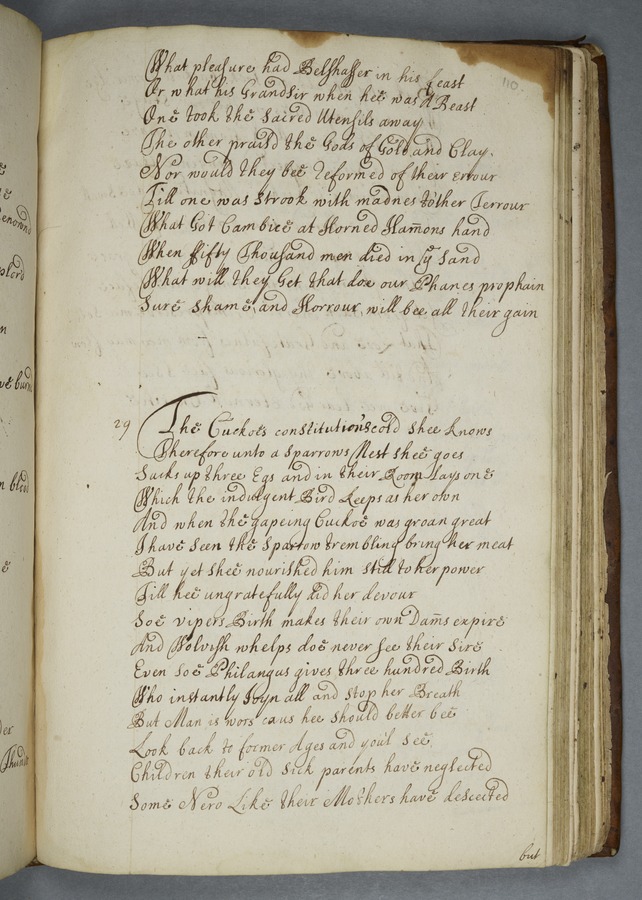 110
What pleasure had Belshasser in his feast
Or what his Grandsir when heē was A Beast
Onē took the Sacred Utensils away
The other prais'd thē Gods of Gold and Clay.
Nor would they beē Reformed of their errour
Till one was Strook with madnes tother Terrour
What Got Cambiceē at Horned Ham̄ons hand
When ffifty Thousand men died in yͤ Sand
What will they Get that doe our Phanes prophain
Sure shamē, and Horrour will bee all their gain
29
The Cuckoēs constitution's cold sheē knows
Therefore unto a Sparrows Nest sheē goes
Sucks up three Egs and in their Room Lays onē
Which the indulgent Bird Keeps as her own
And when thē gapeing Cuckoē was groan great
I havē Seen thē Sparrow trembling bring her meat
But yet sheē nourished him still to her power
Till heē ungratefully did her devour
Soē vipers Birth makes their own Dam̄s expirē
And Wolvish whelps doē never see their Sirē
Even Soē Philangus gives three hundred Birth
Who instantly Joyn all and stop her Breath
But Man is wors caus hee should better beē
Look back to former Ages and you'l seē
Children their old Sick parents havē neglected
Somē Nero Likē their Mothers havē descected
but
enownd
plord
n
vē burnd
n bleed
ē
der
Thund